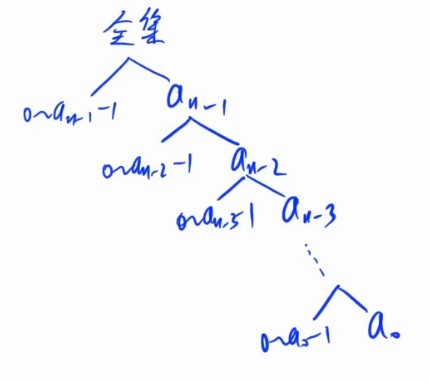 全集
0~aₙ₋₁-1 aₙ₋₁
0~aₙ₋₂-1 aₙ₋₂
0~aₙ₋₃-1 aₙ₋₃
0~a₀-1 a₀